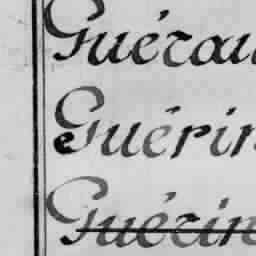 Guérau
Guérin
Guérin